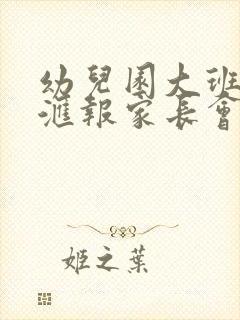 幼兒園大班
滙報家長會
姬之葉